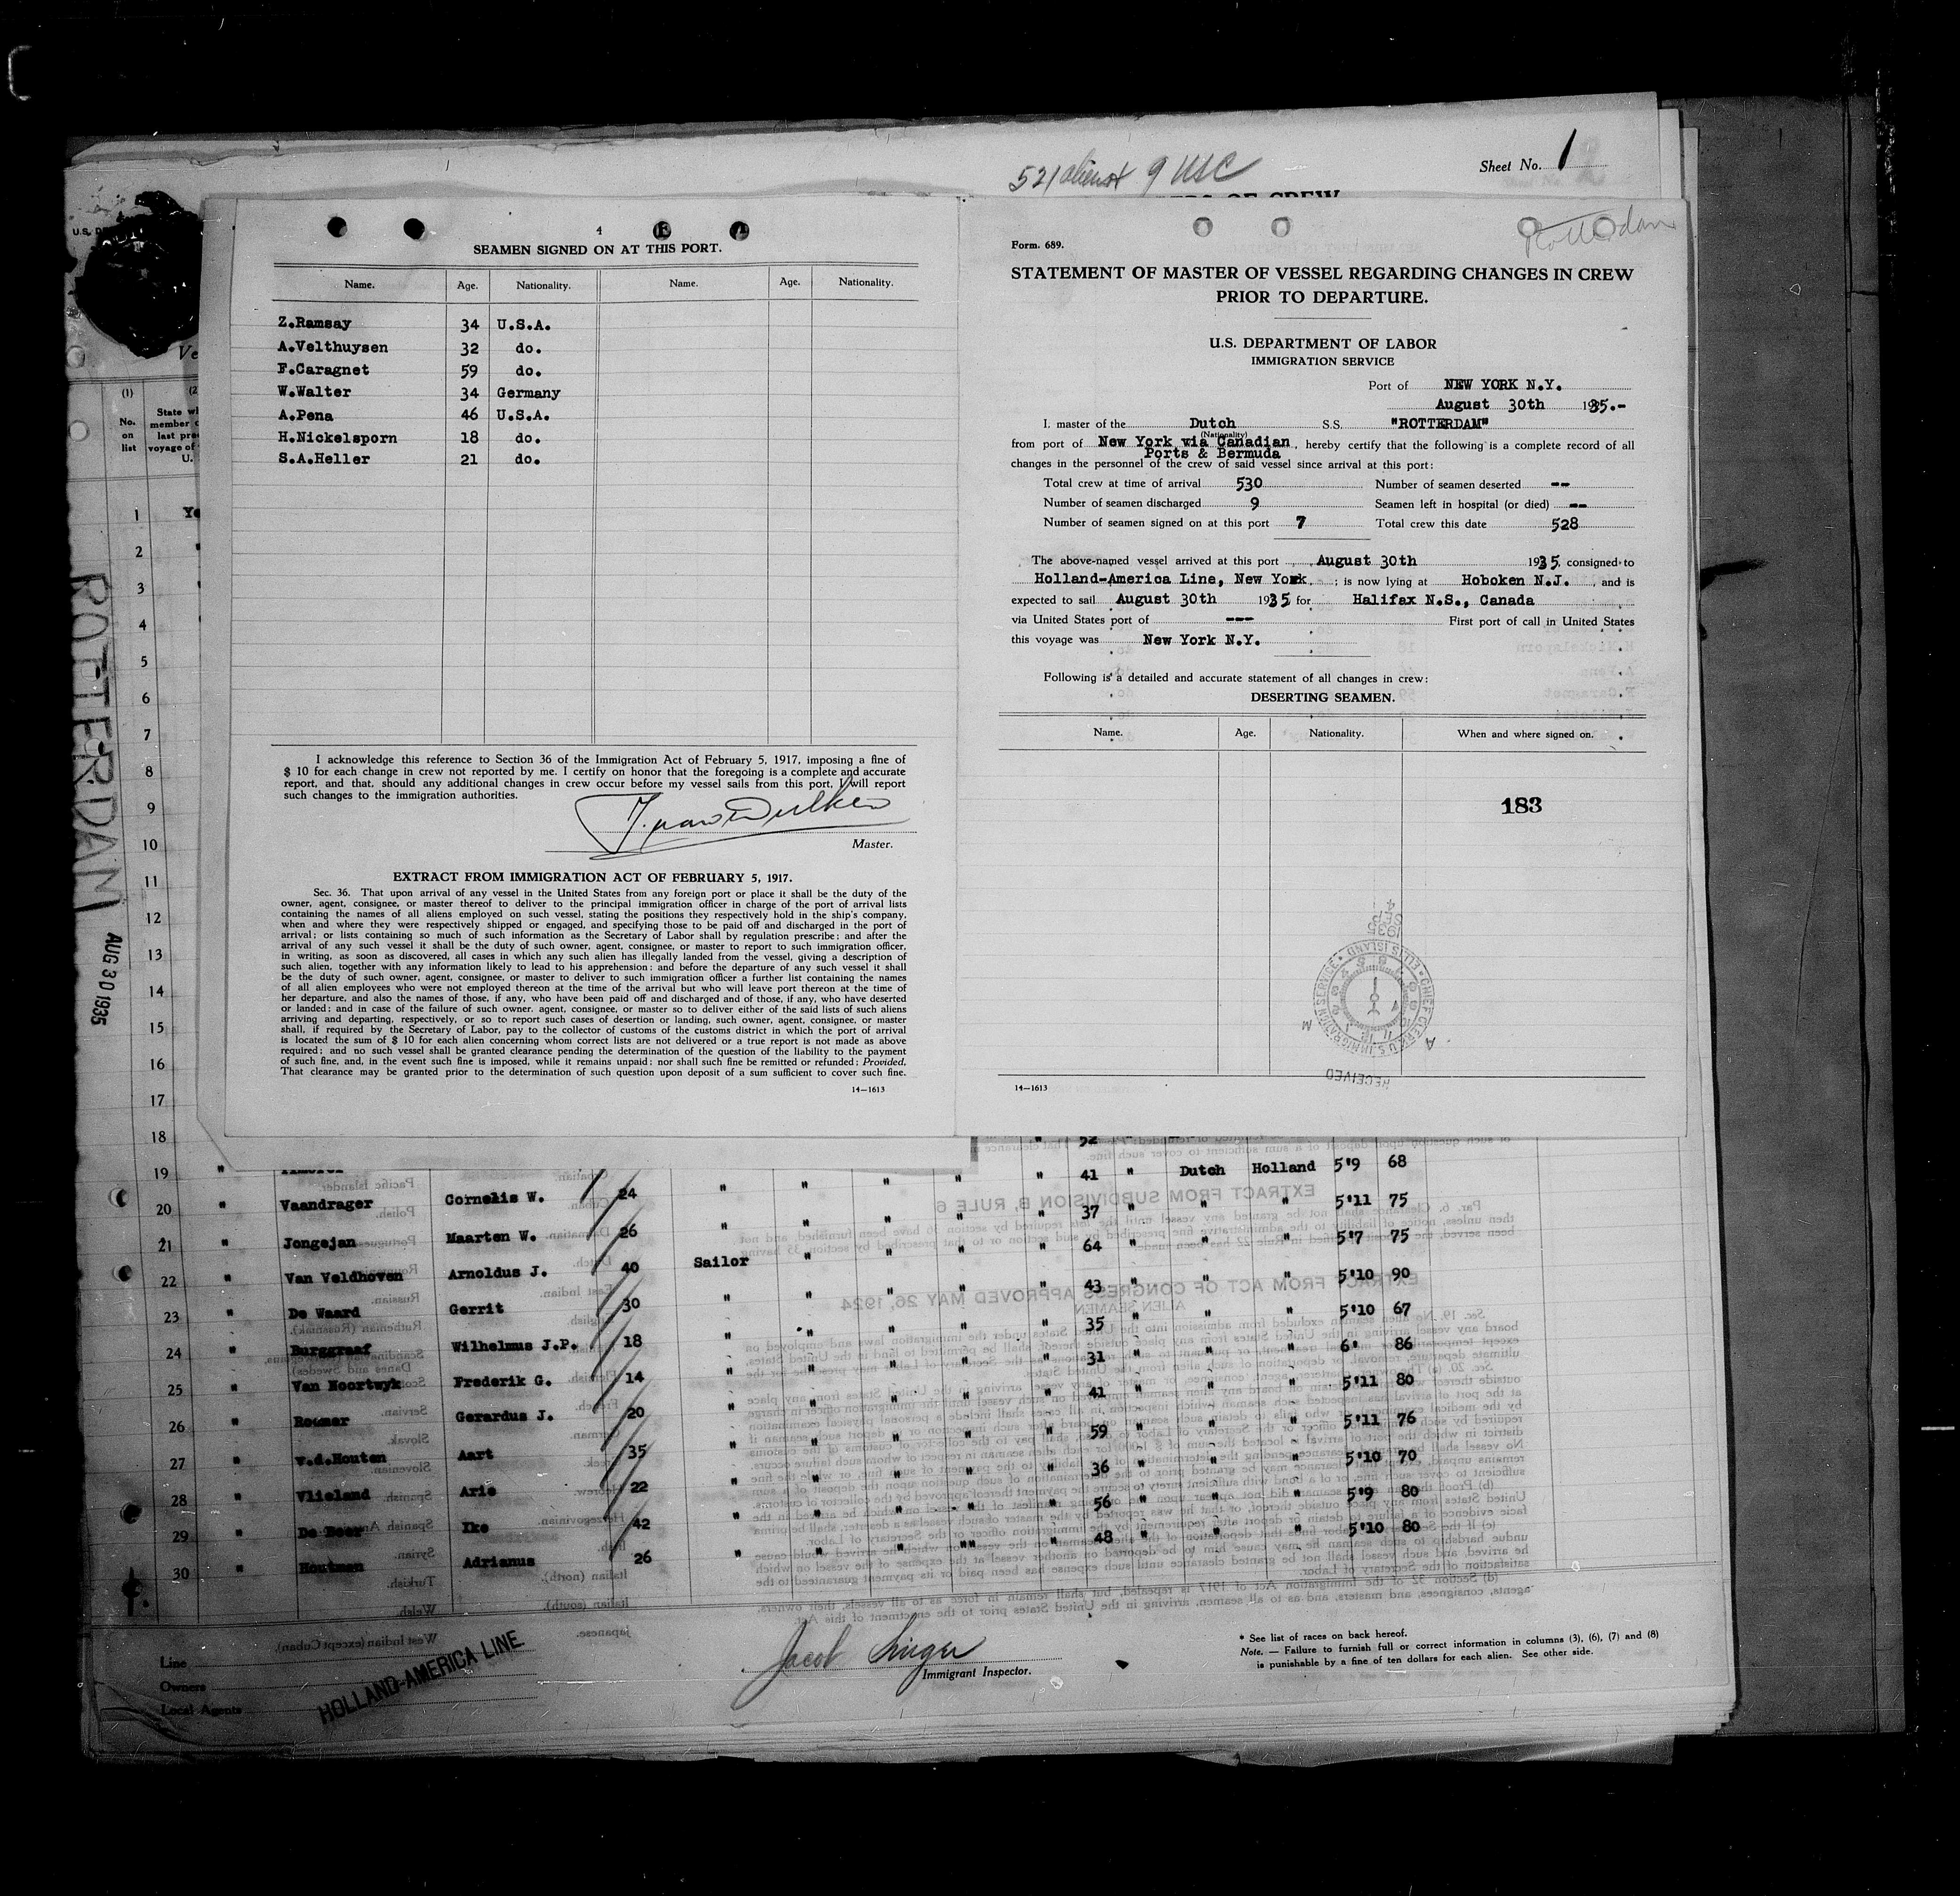 521 aliens + 9 USC
Sheet No. 1
4
SEAMEN SIGNED ON AT THIS PORT.
Name. Age. Nationality. Name. Age. Nationality.
Z.Ramsay 34 U.S.A.
A.Velthuysen 32 do.
F.Caragnet 59 do.
W.Walter 34 Germany
A.Pena 46 U.S.A.
H.Nickelsporn 18 do.
S.A.Heller 21 do.
I acknowledge this reference to Section 36 of the Immigration Act of February 5, 1917, imposing a fine of
$ 10 for each change in crew not reported by me. I certify on honor that the foregoing is a complete and accurate
report, and that, should any additional changes in crew occur before my vessel sails from this port, I will report
such changes to the immigration authorities.
Master.
EXTRACT FROM IMMIGRATION ACT OF FEBRUARY 5, 1917.
Sec. 36. That upon arrival of any vessel in the United States from any foreign port or place it shall be the duty of the
owner, agent, consignee, or master thereof to deliver to the principal immigration officer in charge of the port of arrival lists
containing the names of all aliens employed on such vessel, stating the positions they respectively hold in the ship's company,
when and where they were respectively shipped or engaged, and specifying those to be paid off and discharged in the port of
arrival; or lists containing so much of such information as the Secretary of Labor shall by regulation prescribe; and after the
arrival of any such vessel it shall be the duty of such owner, agent, consignee, or master to report to such immigration officer,
in writing, as soon as discovered, all cases in which any such alien has illegally landed from the vessel, giving a description of
such alien, together with any information likely to lead to his apprehension; and before the departure of any such vessel it shall
be the duty of such owner, agent, consignee, or master to deliver to such immigration officer a further list containing the names
of all alien employees who were not employed thereon at the time of the arrival but who will leave port thereon at the time of
her departure, and also the names of those, if any, who have been paid off and discharged and of those, if any, who have deserted
or landed; and in case of the failure of such owner. agent, consignee, or master so to deliver either of the said lists of such aliens
arriving and departing, respectively, or so to report such cases of desertion or landing, such owner, agent, consignee, or master
shall, if required by the Secretary of Labor, pay to the collector of customs of the customs district in which the port of arrival
is located the sum of $ 10 for each alien concerning whom correct lists are not delivered or a true report is not made as above
required; and no such vessel shall be granted clearance pending the determination of the question of the liability to the payment
of such fine, and, in the event such fine is imposed, while it remains unpaid; nor shall such fine be remitted or refunded; Provided.
That clearance may be granted prior to the determination of such question upon deposit of a sum sufficient to cover such fine.
14—1613
Rotterdam
Form. 689.
STATEMENT OF MASTER OF VESSEL REGARDING CHANGES IN CREW
PRIOR TO DEPARTURE.
U.S. DEPARTMENT OF LABOR
IMMIGRATION SERVICE
Port of NEW YORK N.Y.
August 30th 1935.-
I. master of the Dutch S.S. "ROTTERDAM"
(Nationality)
from port of New York via Canadian , hereby certify that the following is a complete record of all
Ports & Bermuda
changes in the personnel of the crew of said vessel since arrival at this port:
Total crew at time of arrival 530 Number of seamen deserted --
Number of seamen discharged 9 Seamen left in hospital (or died) --
Number of seamen signed on at this port 7 Total crew this date 528
The above-named vessel arrived at this port August 30th 1935. consigned to
Holland-America Line, New York. ; is now lying at Hoboken N.J. , and is
expected to sail August 30th 1935 for Halifax N.S., Canada
via United States port of --- First port of call in United States
this voyage was New York N.Y.
Following is a detailed and accurate statement of all changes in crew:
DESERTING SEAMEN.
Name. Age. Nationality. When and where signed on.
183
RECEIVED
CHIEF CLERK U.S. IMMIGRATION SERVICE ELLIS ISLAND
1935 SEP 4
14—1613
ROTTERDAM
AUG 30 1935
(1)
No. on list
1
2
3
4
5
6
7
8
9
10
11
12
13
14
15
16
17
18
52
19 " 41 " Dutch Holland 5'9 68
20 " Vaandrager Cornelis W. 24 " " " " " 37 " " " 5'11 75
21 " Jongejan Maarten W. 26 " " " " " 64 " " " 5'7 75
22 " Van Veldhoven Arnoldus J. 40 Sailor " " " " 43 " " " 5'10 90
23 " De Waard Gerrit 30 " " " " " 35 " " " 5'10 67
24 " Burggraaf Wilhelmus J.P. 18 " " " " " 31 " " " 6' 86
25 " Van Noortwyk Frederik G. 14 " " " " " 41 " " " 5'11 80
26 " Roemer Gerardus J. 20 " " " " " 59 " " " 5'11 76
27 " v.d.Houten Aart 35 " " " " " 36 " " " 5'10 70
28 " Vlieland Arie 22 " " " " " 56 " " " 5'9 80
29 " De Boer Eke 42 " " " " " 48 " " " 5'10 80
30 " Houtman Adrianus 26
Line
Owners
Local Agents
HOLLAND-AMERICA LINE
Jacob Singer
Immigrant Inspector.
* See list of races on back hereof.
Note. — Failure to furnish full or correct information in columns (3), (6), (7) and (8)
is punishable by a fine of ten dollars for each alien. See other side.